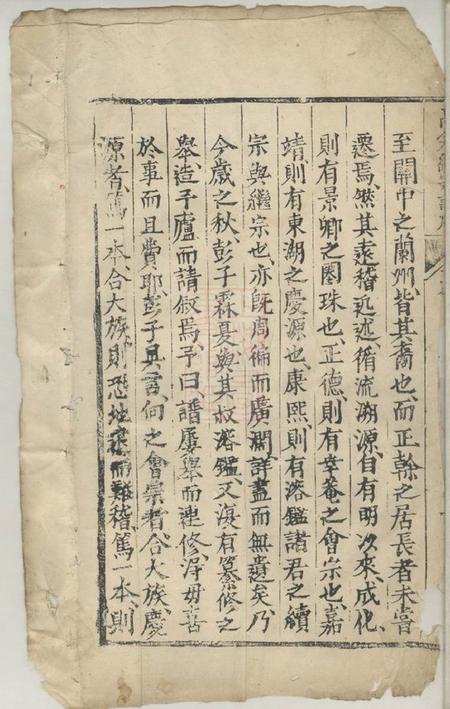 至關中之蘭州皆其裔也而正幹之居長者未嘗
遷焉然其遠稽近述循流溯源自有明以來成化
則有景卿之圏珠也正德則有幸菴之會宗也嘉
靖則有東湖之慶源也康熙則有溶鑑諸君之續
宗與繼宗也亦旣周徧而廣濶詳盡而無遺矣乃
今歲之秋彭子霖夏與其叔溶鑑又復有纂修之
舉造予廬而請叙焉予曰譜屢舉而迭修得毋喜
於事而且費耶彭子具言向之會宗者合大族慶
源者篤一本合大族則恐地遠而難稽篤一本則